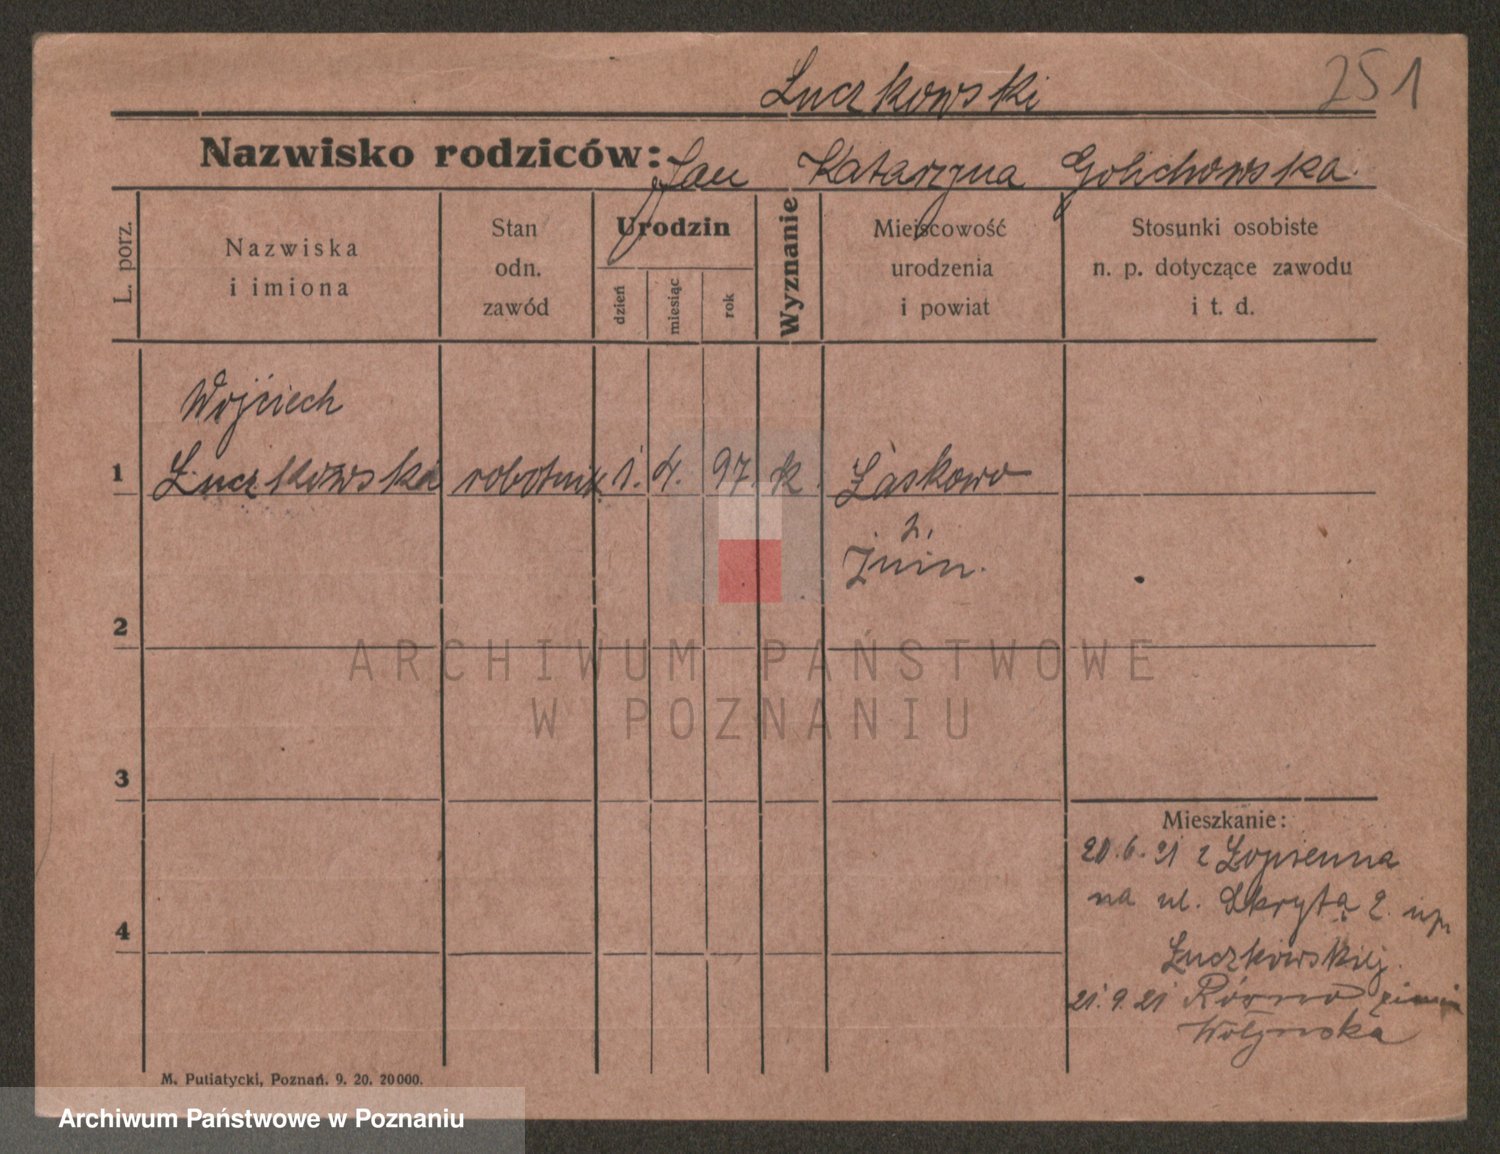 Łuczkowski
251
Nazwisko rodziców: Jan Katarzyna Golichowska.
L. porz.
Nazwiska
i imiona
Stan
odn.
zawód
Urodzin
dzień
miesiąc
rok
Wyznanie
Miejscowość
urodzenia
i powiat
Stosunki osobiste
n. p. dotyczące zawodu
i t. d.
Wojciech
1 Łuczkowski robotnik 1. 4. 97. k. Laskowo
Żnin.
2
ARCHIWUM PAŃSTWOWE
W POZNANIU
3
Mieszkanie:
20.6.21 z Łopienna
na ul. Skrytą 2.
4
Łuczkowskiej.
21.9.21 Równo ziemia
Wołyńska
M. Putiatycki, Poznań. 9. 20. 20000.
Archiwum Państwowe w Poznaniu